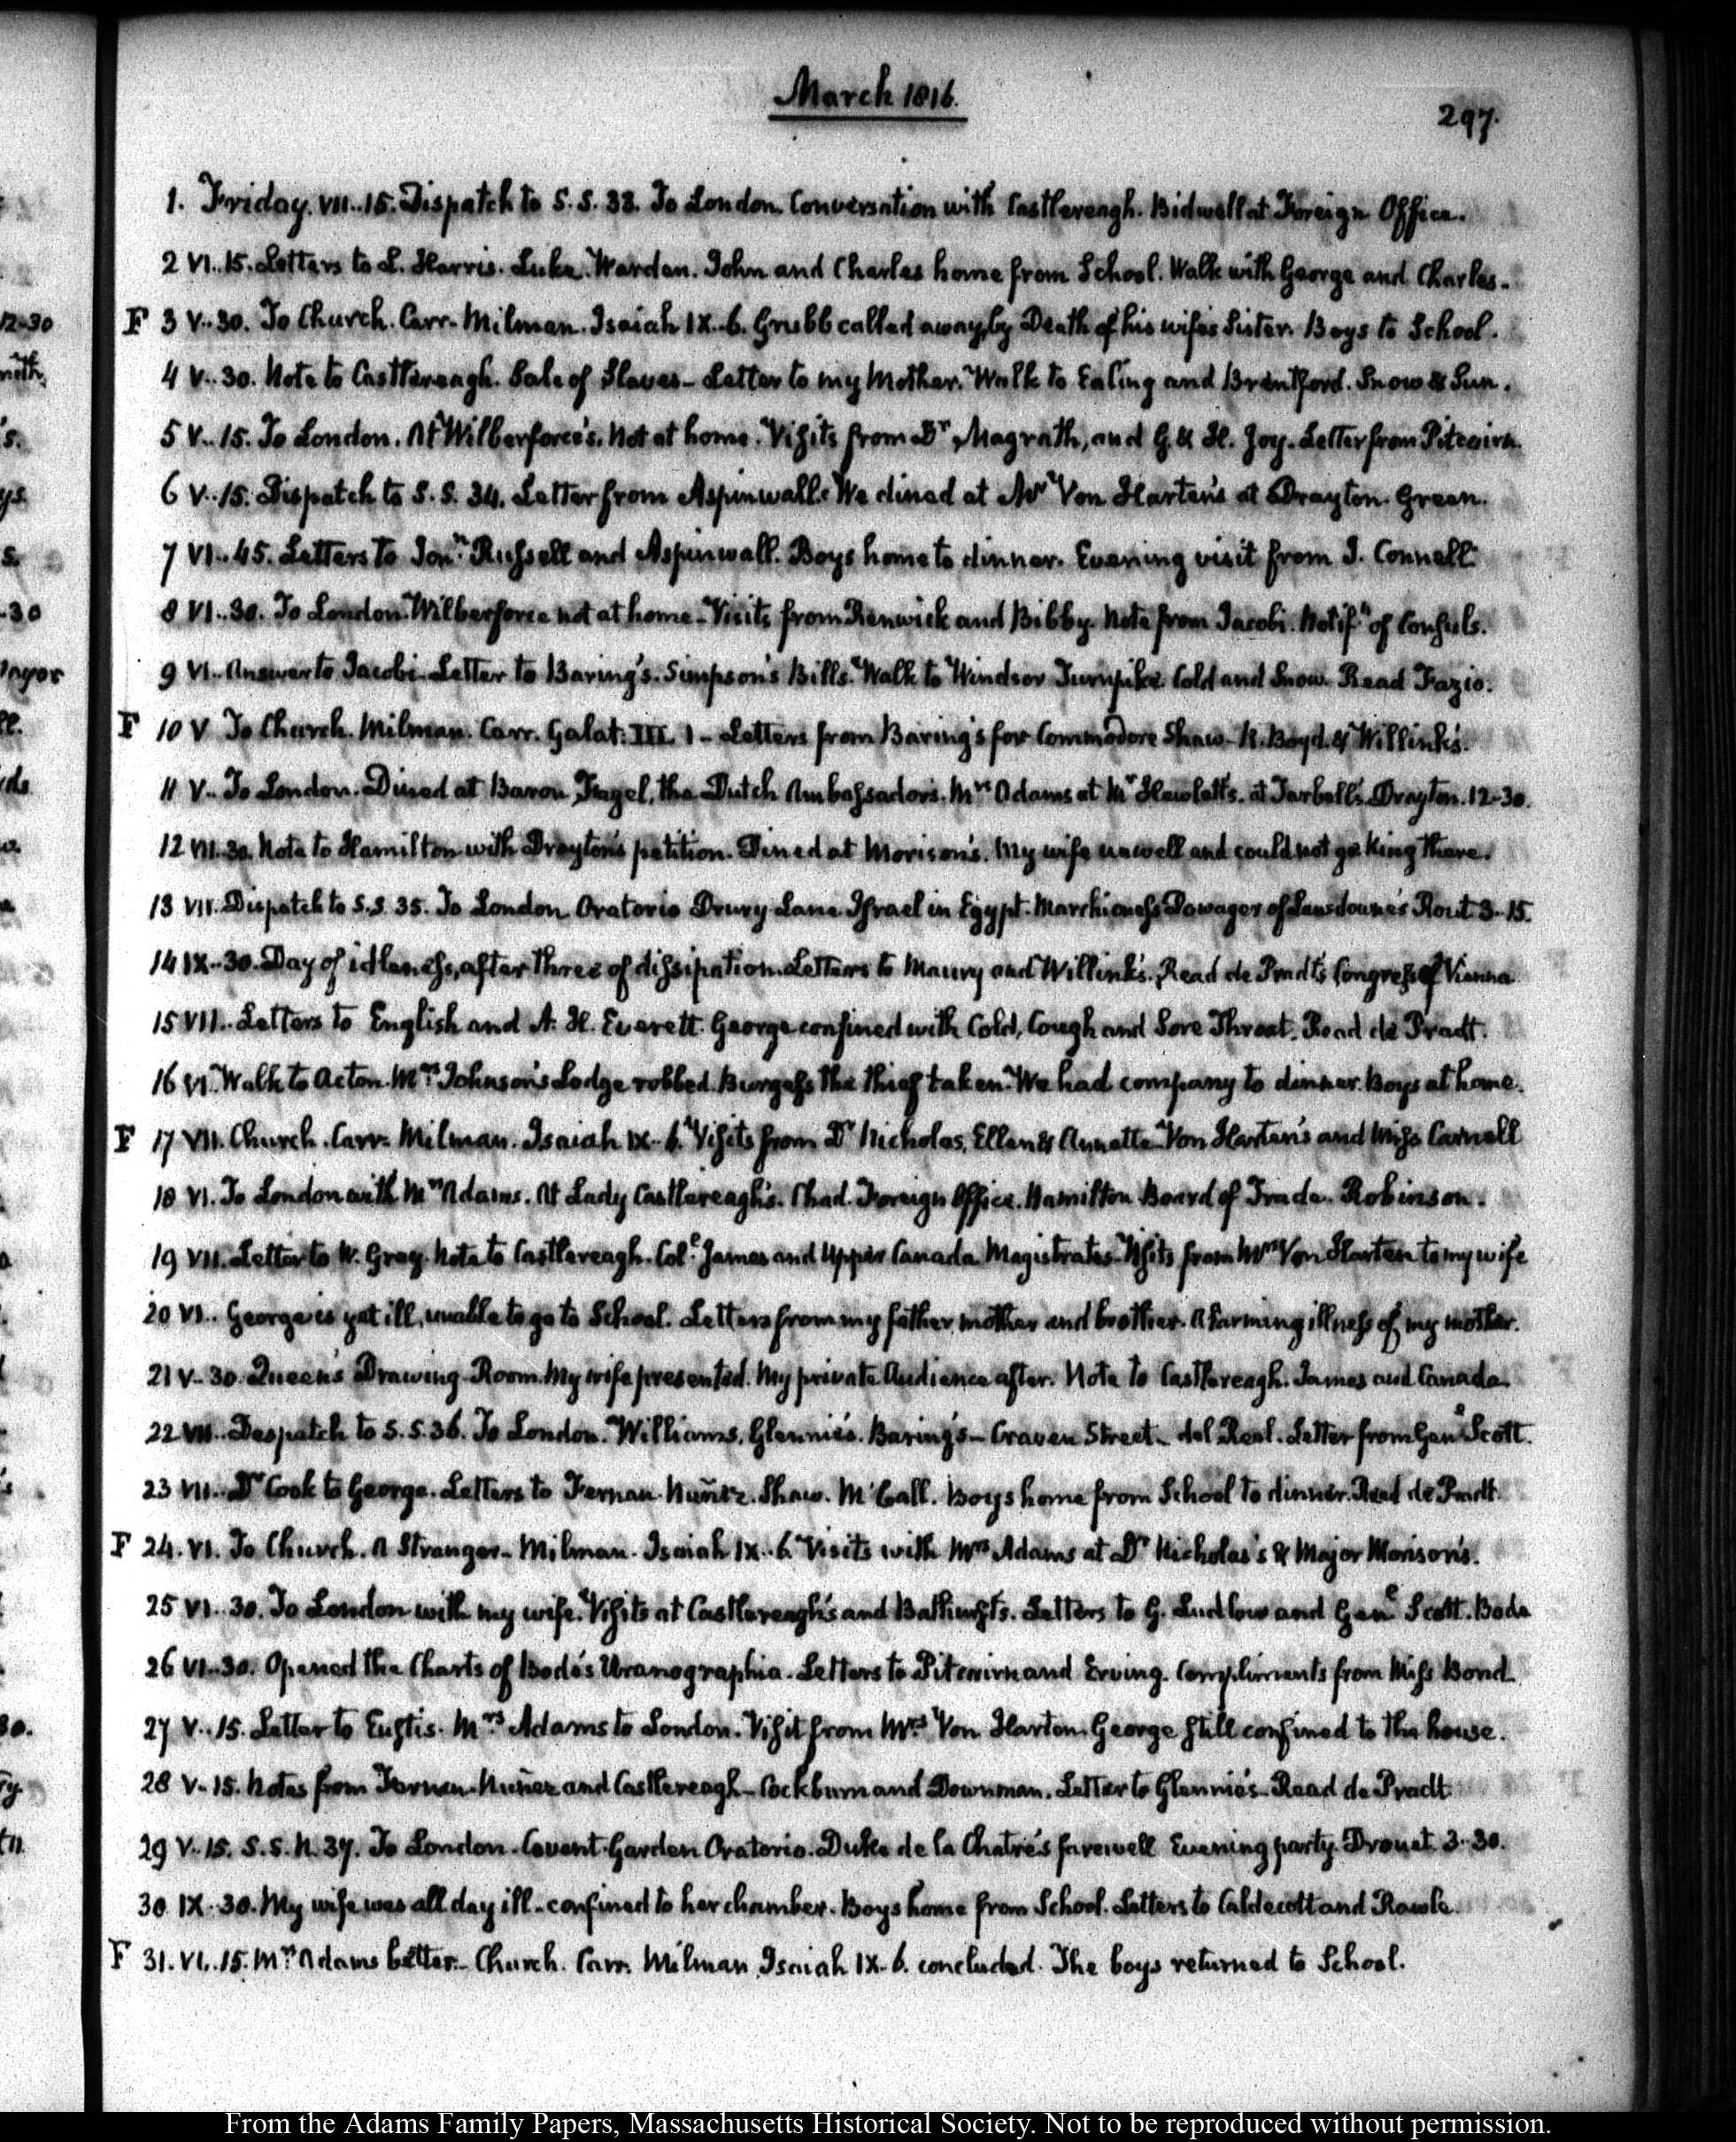 March 1816.
297.
1. Friday. VII..15. Dispatch to S.S. 33. To London. Conversation with Castlereagh. Bidwell at Foreign Office.
2 VI..15. Letters to L. Harris. Luke. Warden. John and Charles home from School. Walk with George and Charles.
F 3 V..30. To Church. Carr. Milman. Isaiah IX..6. Grubb called away, by Death of his wife's Sister. Boys to School.
4 V..30. Note to Castlereagh. Sale of Slaves – Letter to my Mother. Walk to Ealing and Brentford. Snow & Sun.
5 V..15. To London. At Wilberforce's. Not at home. Visits from Dr. Magrath, and G. & H. Joy. Letter from Pitcairn.
6 V..15. Dispatch to S.S. 34. Letter from Aspinwall. We dined at Mr Von Harten's at Drayton-Green.
7 VI..45. Letters to Jonn. Russell and Aspinwall. Boys home to dinner. Evening visit from J. Connell
8 VI..30. To London. Wilberforce not at home – Visits from Renwick and Bibby. Note from Jacobi. Notifn of Consuls.
9 VI. Answer to Jacobi. Letter to Baring's. Simpson's Bills. Walk to Windsor Turnpike Cold and Snow. Read Fazio.
F 10 V To Church. Milman. Carr. Galat: III. 1 – Letters from Baring's for Commodore Shaw – R. Boyd. & Willink's.
11 V.. To London. Dined at Baron Fagel, the Dutch Ambassador's. Mrs Adams at Mr Hewlett's. at Tarbell's Drayton. 12-30.
12 VII..30. Note to Hamilton with Drayton's petition. Dined at Morison's. My wife unwell and could not go. King there.
13 VII. Dispatch to S.S. 35. To London Oratorio Drury-Lane Israel in Egypt. Marchioness Dowager of Lansdowne's Rout 3-15.
14 IX-30. Day of idleness, after three of dissipation. Letters to Maury and Willink's. Read de Pradt's Congress of Vienna
15 VII.. Letters to English and A. H. Everett. George confined with Cold, Cough and Sore Throat. Read de Pradt.
16 VI. Walk to Acton. Mrs Johnson's Lodge robbed. Burgess the thief taken. We had company to dinner. Boys at home.
F 17 VII. Church. Carr. Milman. Isaiah IX..6. Visits from Dr Nicholas, Ellen & Annette Von Harten's and Miss Carnell
18 VI. To London with Mrs Adams. At Lady Castlereagh's. Chad. Foreign Office. Hamilton Board of Trade. Robinson.
19 VII. Letter to W. Gray. Note to Castlereagh. Coll. James and Upper Canada Magistrates. Visits from Mrs Von Harten to my wife
20 VI.. George is yet ill, unable to go to School. Letters from my father, mother and brother. Alarming illness of my mother.
21 V-30. Queen's Drawing-Room. My wife presented. My private Audience after. Note to Castlereagh. James and Canada.
22 VII.. Despatch to S.S. 36. To London. Williams, Glennie's. Baring's – Craven Street – del Real. Letter from Genl Scott.
23 VII.. Dr Cook to George. Letters to Fernan-Nuñez. Shaw. McCall. Boys home from School to dinner. Read de Pradt.
F 24. VI. To Church. A Stranger – Milman. Isaiah IX..6. Visits with Mrs Adams at Dr Nicholas's & Major Morison's.
25 VI..30. To London with my wife. Visits at Castlereagh's and Bathurst's. Letters to G. Ludlow and Genl. Scott. Bode
26 VI..30. Opened the Charts of Bode's Uranographia. Letters to Pitcairn and Erving. Compliments from Miss Bond.
27 V..15. Letter to Eustis. Mrs Adams to London. Visit from Mrs Von Harten. George still confined to the house.
28 V-15. Notes from Fernan-Nuñez and Castlereagh – Cockburn and Downman. Letter to Glennie's. Read de Pradt
29 V..15. S.S. N. 37. To London. Covent-Garden Oratorio. Duke de la Chatre's farewell Evening party. Drouet. 3-30.
30 IX-30. My wife was all day ill – confined to her chamber. Boys home from School. Letters to Caldecott and Rawle.
F 31. VI..15. Mrs Adams better – Church. Carr. Milman Isaiah IX-6. concluded. The boys returned to School.
From the Adams Family Papers, Massachusetts Historical Society. Not to be reproduced without permission.